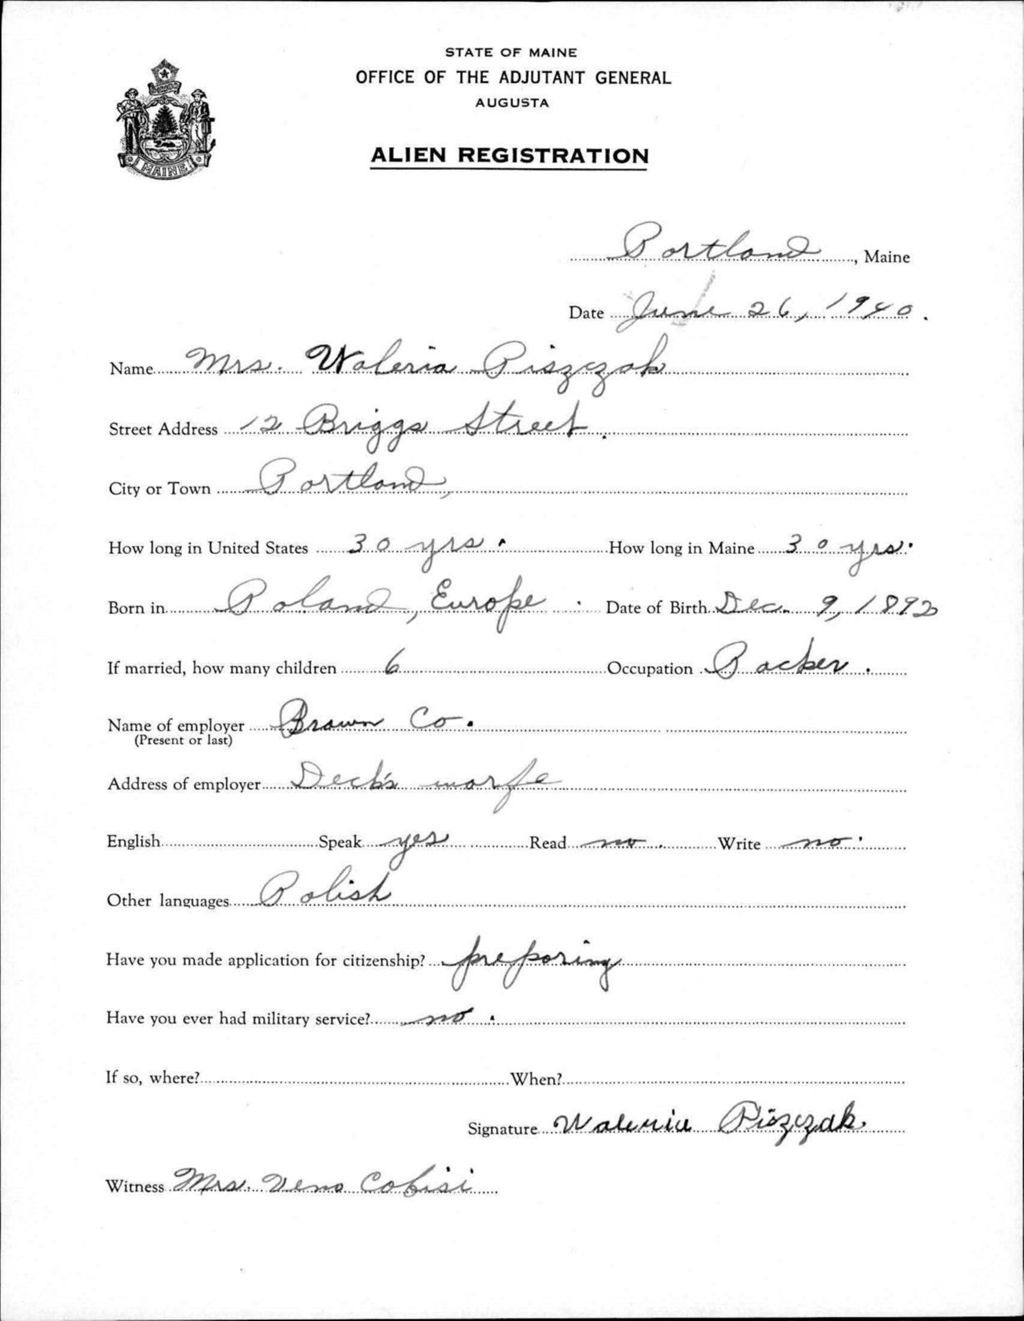 STATE OF MAINE
OFFICE OF THE ADJUTANT GENERAL
AUGUSTA
ALIEN REGISTRATION
MAINE
Portland, Maine
Date June 26, 1940.
Name Mrs. Waleria Piszczak
Street Address 12 Briggs Street.
City or Town Portland,
How long in United States 30 yrs. How long in Maine 30 yrs.
Born in Poland, Europe. Date of Birth Dec. 9, 1892
If married, how many children 6 Occupation Packer.
Name of employer Brown Co.
(Present or last)
Address of employer Deck's warfe
English Speak yes Read no. Write no.
Other languages Polish
Have you made application for citizenship? preparing
Have you ever had military service? no.
If so, where? When?
Signature Waleria Piszczak
Witness Mrs.